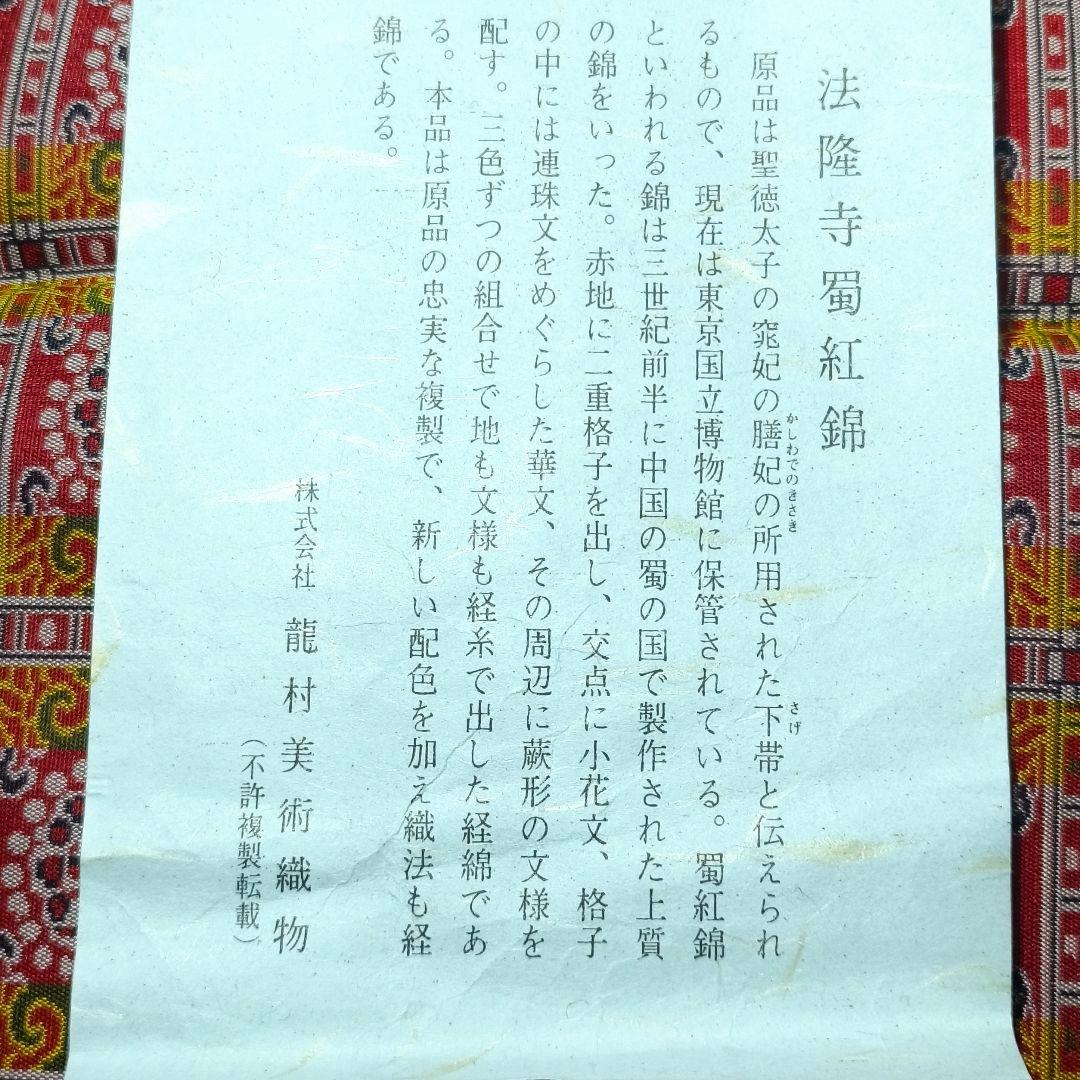 法隆寺蜀紅錦
原品は聖徳太子の窕妃の膳妃の所用された下帯と伝えられ
かしわでのきさき
さげ
るもので、現在は東京国立博物館に保管されている。蜀紅錦
といわれる錦は三世紀前半に中国の蜀の国で製作された上質
の錦をいった。赤地に二重格子を出し、交点に小花文、格子
の中には連珠文をめぐらした華文、その周辺に蕨形の文様を
配す。三色ずつの組合せで地も文様も経糸で出した経綿であ
る。本品は原品の忠実な複製で、新しい配色を加え織法も経
錦である。
株式会社 龍村美術織物
（不許複製転載）